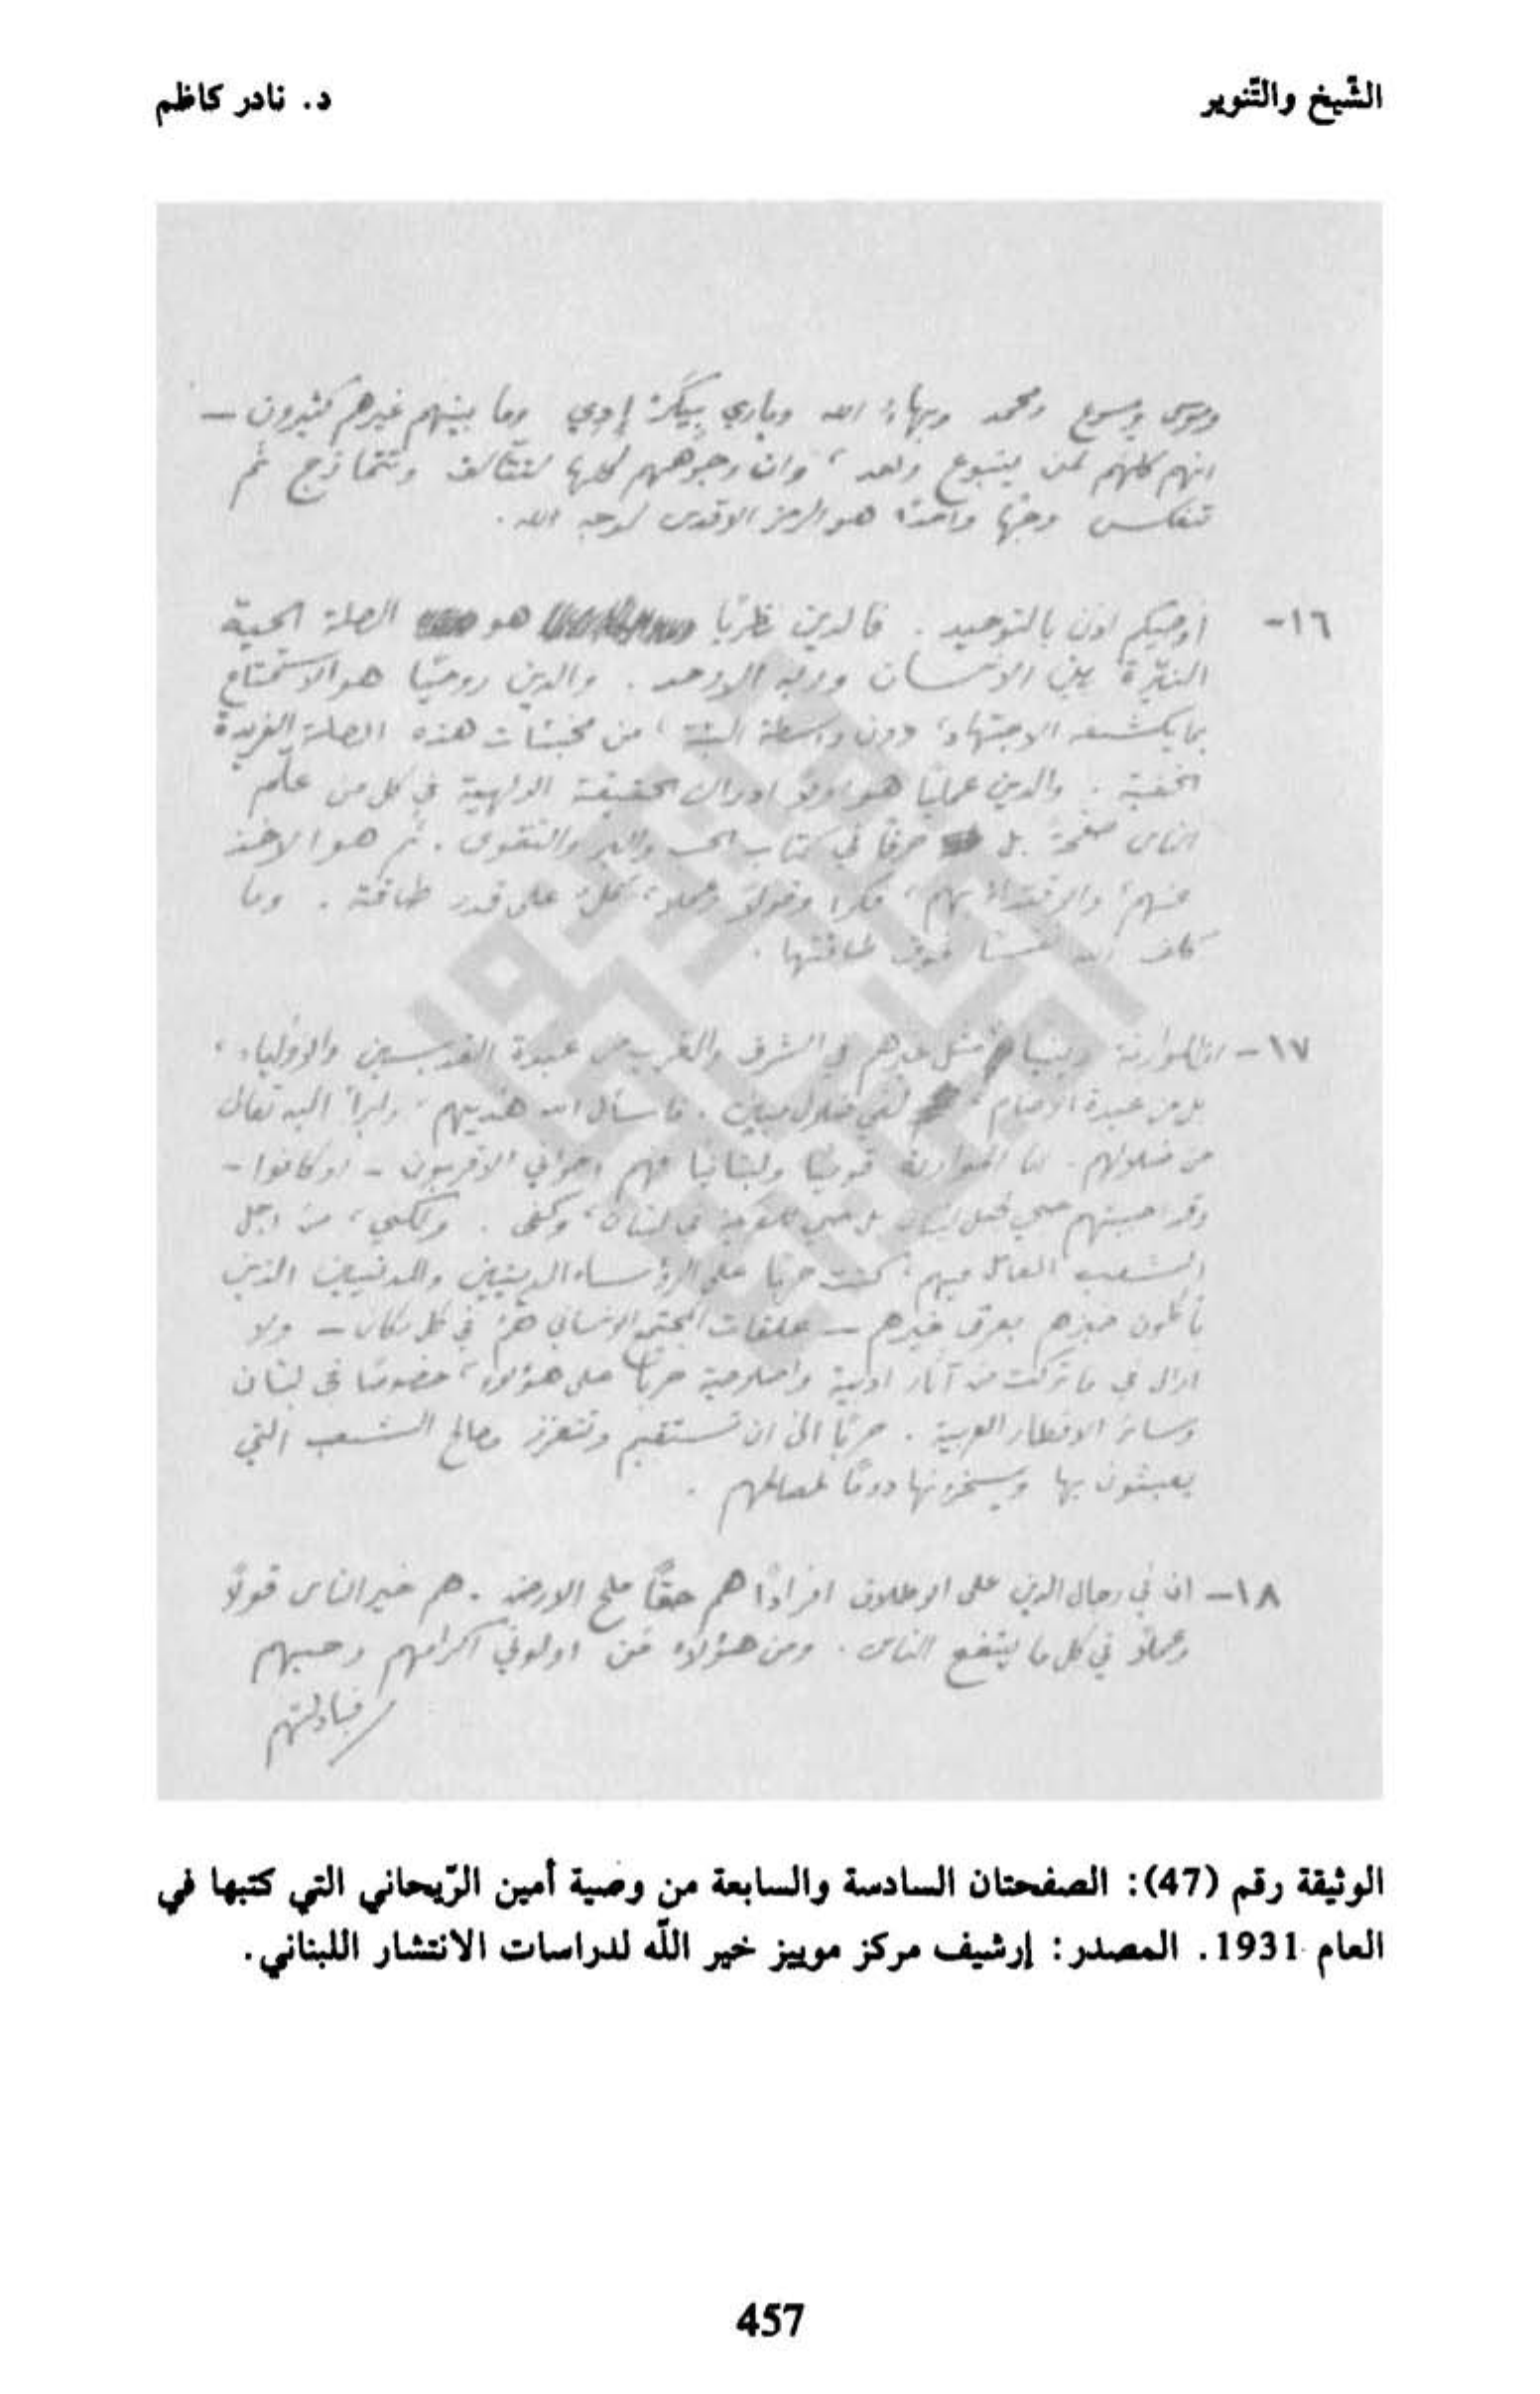 الشّيخ والتّنوير
د. نادر كاظم
وموسى ويسوع ومحمد وبهاء الله وماري بيكر إدي وما بينهم غيرهم كثيرون –
انهم كلهم لمن ينبوع واحد، وان وجوههم كلها لتتآلف وتتمازج ثم
تنعكس وجهًا واحدًا هو الرمز الاقدس لوجه الله.
١٦- أوصيكم اذن بالتوحيد. فالدين نظريًا هو الصلة الحية
النيّرة بين الانسان وربه الاوحد. والدين روحيًا هو الاستمتاع
بما يكشفه الاجتهاد، دون واسطة البتة، من مخبئات هذه الصلة الفريدة
الخفية. والدين عمليًا هو اولا ادراك الحقيقة الالهية في كل من علّم
الناس صفحة بل حرفًا في كتاب الحب والبر والتقوى. ثم هو الاخذ
عنهم، والاقتداء بهم، فكرا وقولا وعملا، كلٌ على قدر طاقته. وما
كلف الله نفسًا فوق طاقتها.
١٧- ان الموارنة دينيا مثل غيرهم في الشرق والغرب من عبدة القديسين والاولياء،
بل من عبدة الاصنام، لفي ضلال مبين. فاسأل الله هديهم، وابرأ اليه تعالى
من ضلالهم. اما الموارنة قوميًا ولبنانيا فهم اخواني الاقربون - او كانوا -
وقد احببتهم حبي لبنان، وكفى. ولكني، من اجل
الشعب العامل فيهم، كنت حربًا على الرؤساء الدينيين والمدنيين الذين
يأكلون خبزهم بعرق غيرهم – علقات المجتمع الانساني هم في كل مكان – ولا
ازال في ما تركت من آثار ادبية واصلاحية حربًا على هؤلاء، خصوصًا في لبنان
وسائر الاقطار العربية. حربًا الى ان تستقيم وتتعزز مصالح الشعب التي
يعبثون بها ويسخرونها دومًا لمصالحهم.
١٨- ان في رجال الدين على الاطلاق افرادًا هم حقًا ملح الارض. هم خير الناس قولًا
وعملًا في كل ما ينفع الناس. ومن هؤلاء من اولوني اكرامهم وحبهم
فبادلتهم
الوثيقة رقم (47): الصفحتان السادسة والسابعة من وصية أمين الرّيحاني التي كتبها في
العام 1931. المصدر: إرشيف مركز موييز خير اللّه لدراسات الانتشار اللبناني.
457